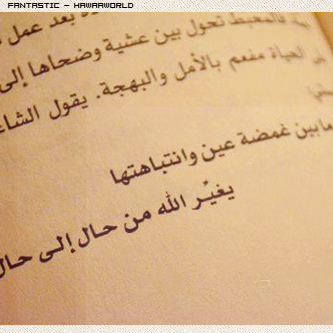 FANTASTIC – HAWAAWORLD
بعد عمل
تحول بين عشية وضحاها إلى
الحياة مفعم بالأمل والبهجة. يقول الشاعر
مابين غمضة عين وانتباهتها
يغيّر الله من حال إلى حال